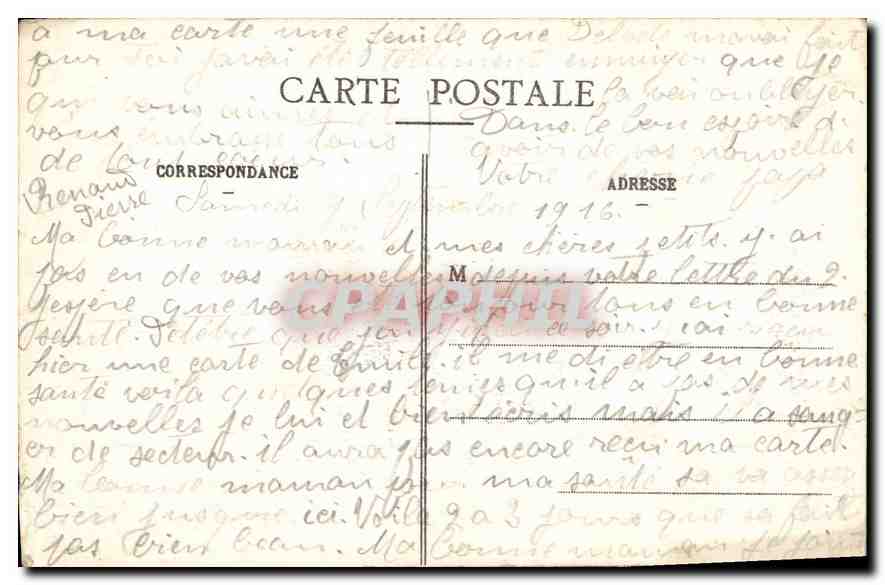 a ma carte une feuille que mavai fait
pour Toi javai été tellement ennuiyer que je
la vai oublyer.
CARTE POSTALE
qui vous aimes et
Dans le bon espoire d
vous embrase tous
avoir de vos nouvelles
de tout coeur.
CORRESPONDANCE
Votre papa
ADRESSE
Renaud
Pierre
Samedi 9 Septembre 1916.
Ma bonne maman et mes chères petits. y. ai
pas eu de vos nouvelles depuis votre lettre du 2.
M
jespère que vous pour tous en bonne
santé. ce soir. jai reçu
hier une carte de Emile. il me di etre en bonne
santé voila quelques temes quil a pas de mes
nouvelles je lui et bien écris mais il a sang-
er de secteur. il aura pas encore reçu ma carte.
Ma bonne maman pour ma santé sa va assez
bien jusque ici. Voila 2 a 3 jours que sa fait
pas bien beau. Ma bonne maman je
CPAPHIL